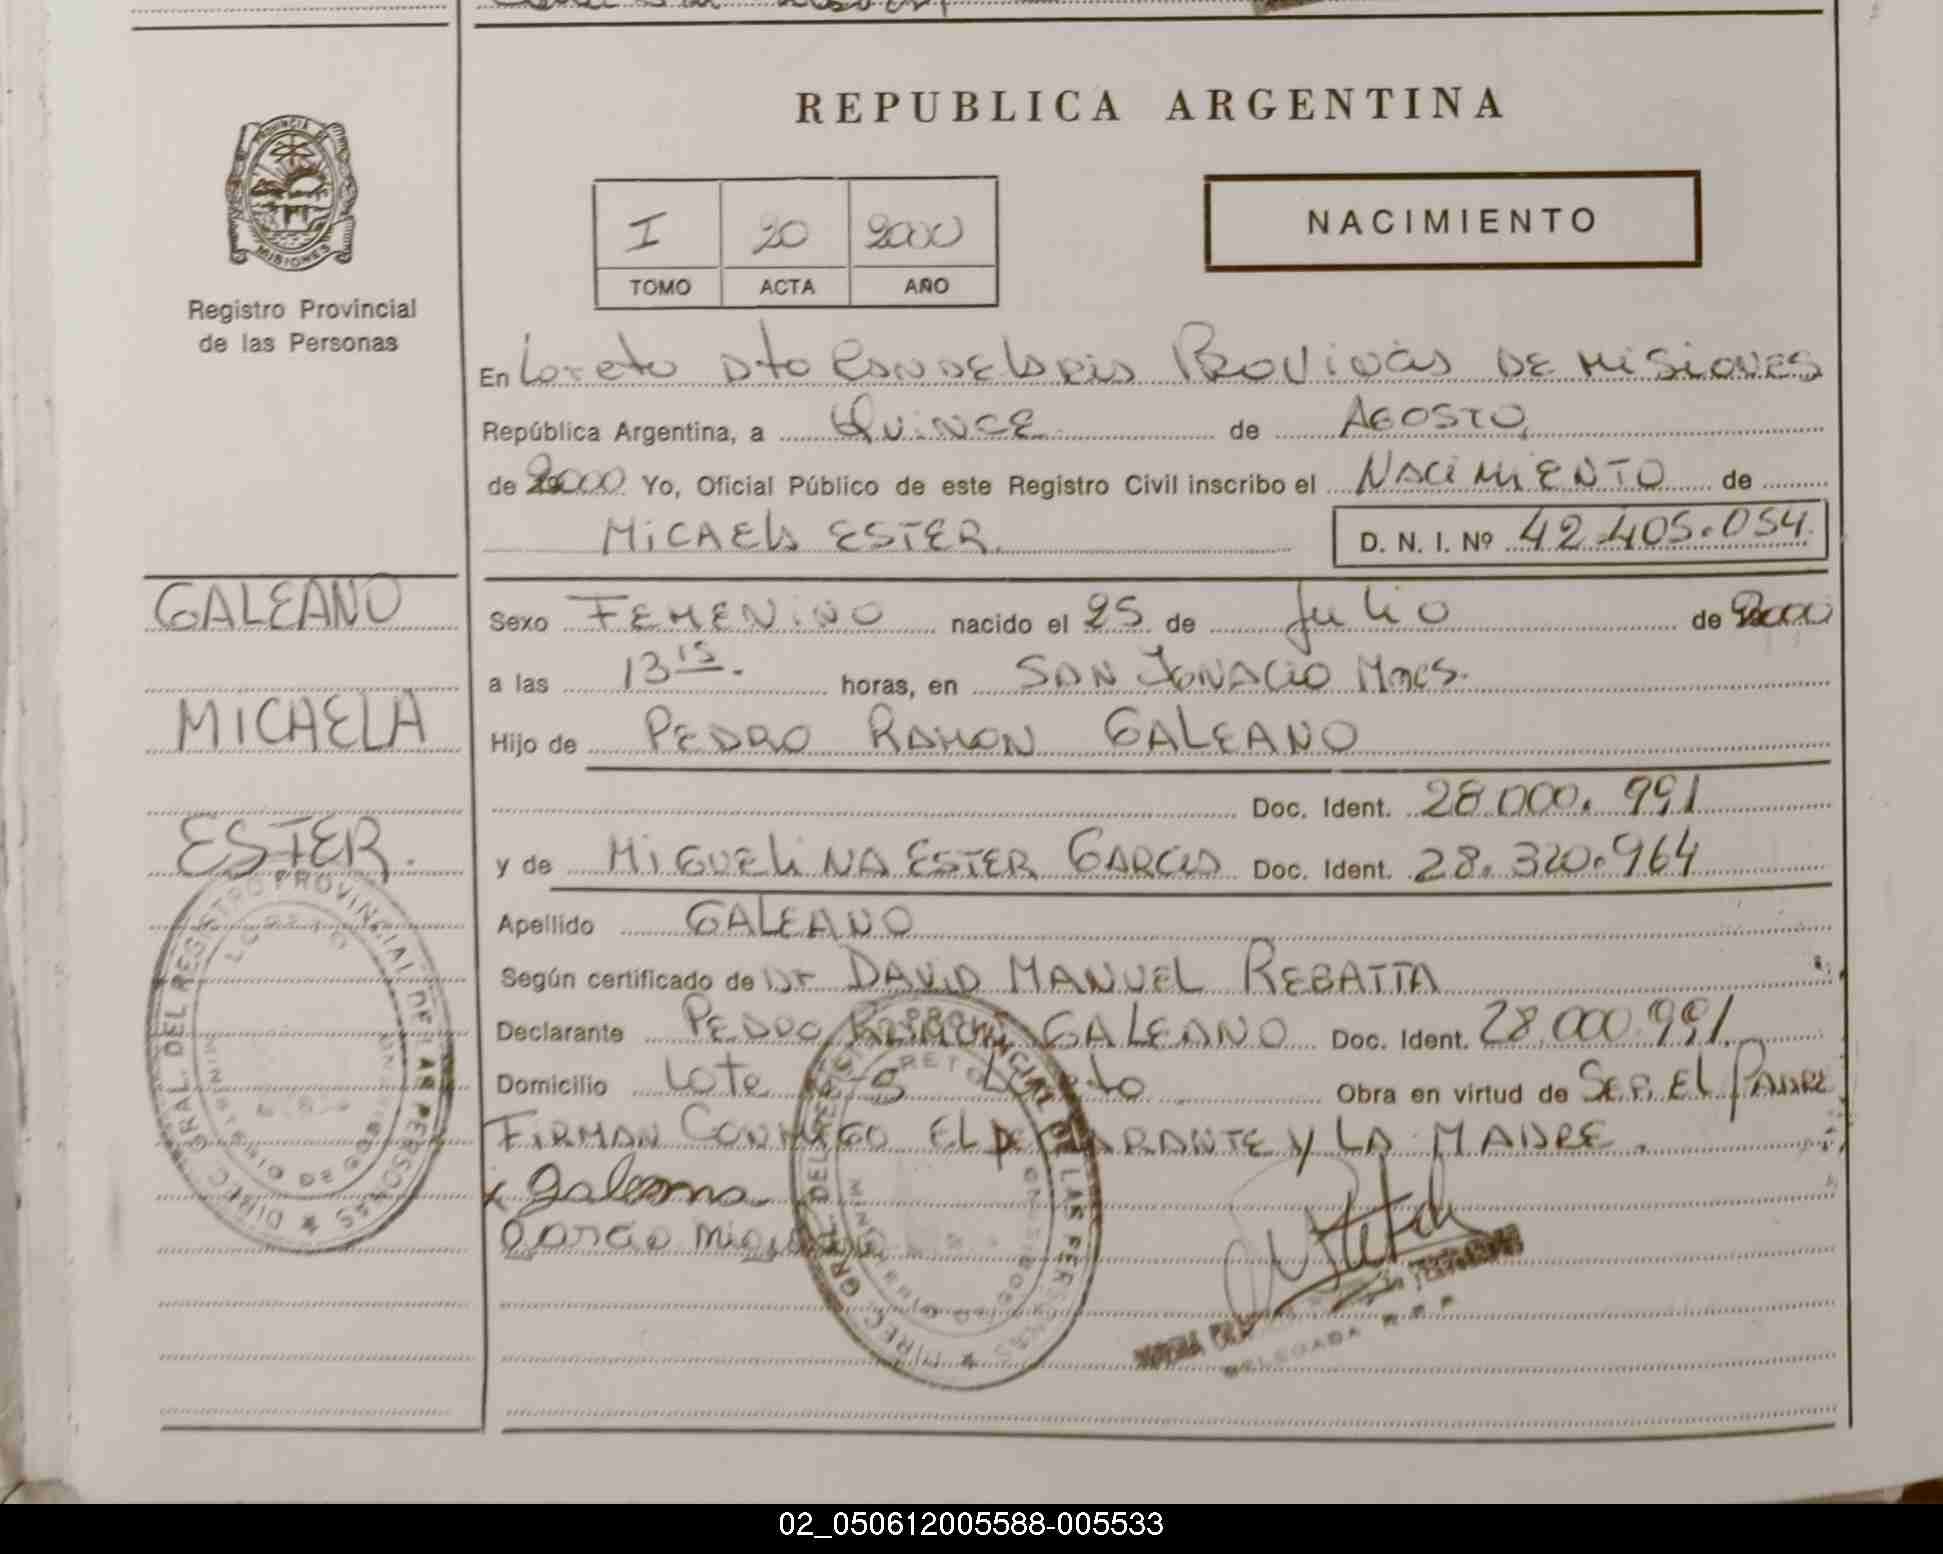 REPUBLICA ARGENTINA
PROVINCIA DE MISIONES
Registro Provincial
de las Personas
I 20 2000
TOMO ACTA AÑO
NACIMIENTO
En Loreto Dto Candelaria Provincia de Misiones
República Argentina, a Quince de Agosto,
de 2000 Yo, Oficial Público de este Registro Civil inscribo el Nacimiento de
Micaela Ester D. N. I. Nº 42.405.054
GALEANO
MICAELA
ESTER.
Sexo Femenino nacido el 25 de Julio de 2000
a las 13 15. horas, en San Ignacio Mnes.
Hijo de Pedro Ramon Galeano
Doc. Ident. 28.000.991
y de Miguelina Ester Garcia Doc. Ident. 28.320.964
Apellido Galeano
Según certificado de Dr David Manuel Rebatta
Declarante Pedro Ramon Galeano Doc. Ident. 28.000.991
Domicilio Lote Loreto Obra en virtud de Ser. El Padre
Firman Conmigo el Declarante y la Madre.
x Galeano
Garcia
DIREC. GRAL. DEL REGISTRO PROVINCIAL DE LAS PERSONAS
LORETO
DIREC. GRAL. DEL REGISTRO PROVINCIAL DE LAS PERSONAS
LORETO
DELEGADA R.P.P.
02_050612005588-005533